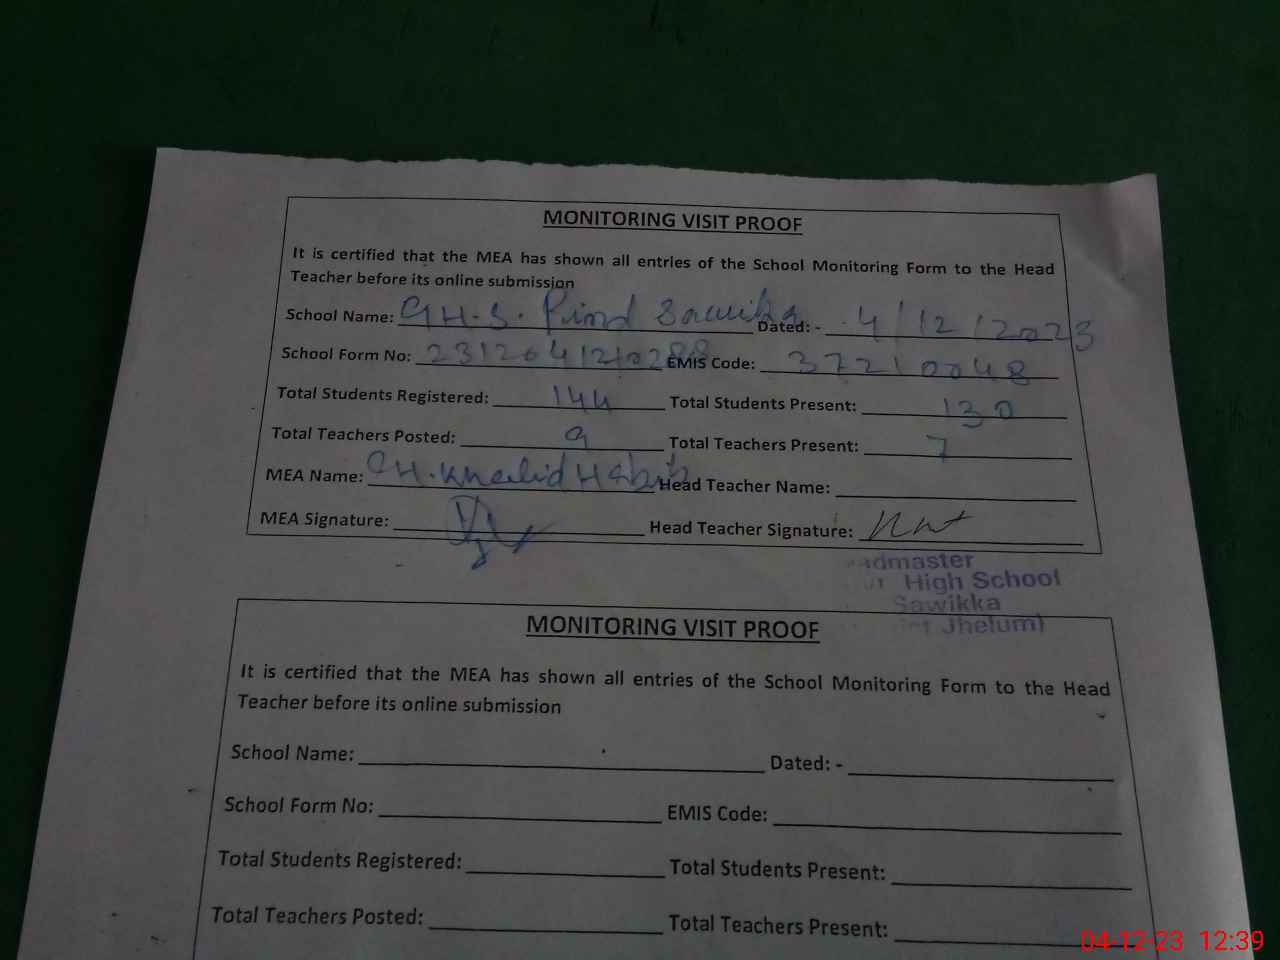 MONITORING VISIT PROOF
It is certified that the MEA has shown all entries of the School Monitoring Form to the Head
Teacher before its online submission
School Name: GH.S. Pind Sawika Dated: - 4/12/2023
School Form No: EMIS Code: 37210048
Total Students Registered: 144 Total Students Present: 130
Total Teachers Posted: 9 Total Teachers Present: 7
MEA Name: CH. Khalid Habib Head Teacher Name:
MEA Signature: Head Teacher Signature:
High School
Sawikka
Jhelum)
MONITORING VISIT PROOF
It is certified that the MEA has shown all entries of the School Monitoring Form to the Head
Teacher before its online submission
School Name: Dated: -
School Form No: EMIS Code:
Total Students Registered: Total Students Present:
Total Teachers Posted: Total Teachers Present:
04-12-23 12:39